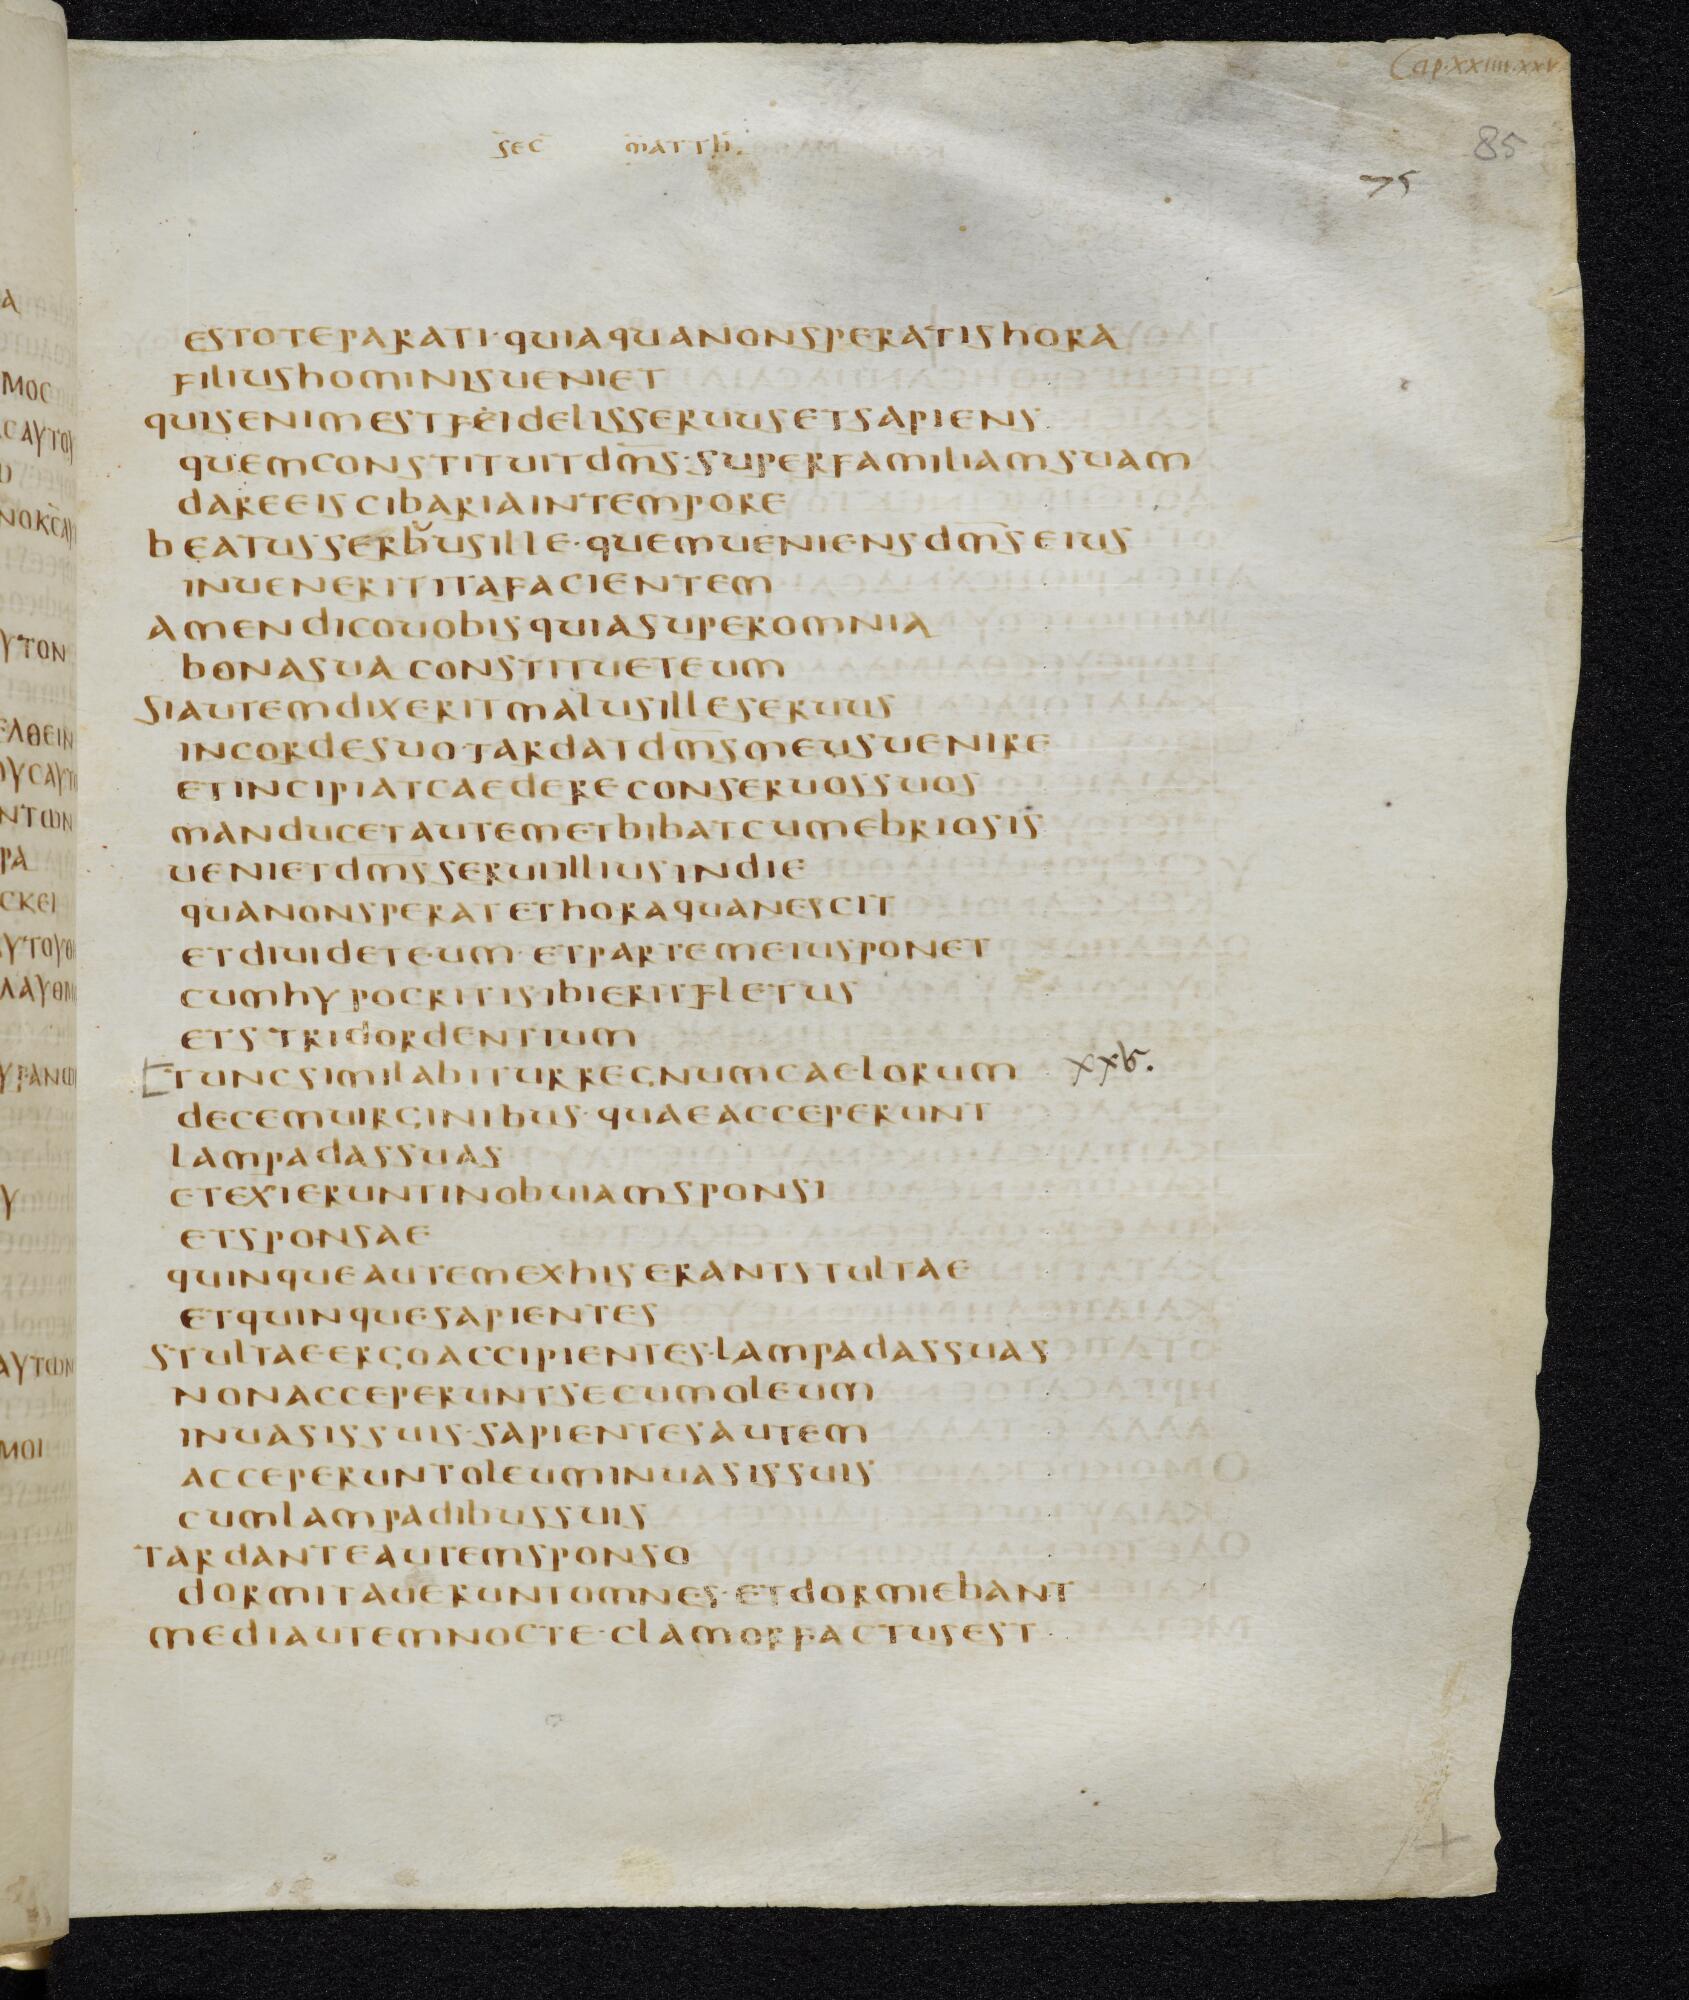 Cap. XXIIII. XXV
SEC MATTH.
85
75
ESTOTEPARATI·QUIAQUANONSPERATISHORA
FILIUSHOMINISUENIET
QUISENIMESTFEIDELISSERUUSETSAPIENS
QUEMCONSTITUITDM̅S·SUPERFAMILIAMSUAM
DAREEISCIBARIAINTEMPORE
BEATUSSERBUSILLE·QUEMUENIENSDM̅SEIUS
INUENERITITAFACIENTEM
AMENDICOUOBISQUIASUPEROMNIA
BONASUACONSTITUETEUM
SIAUTEMDIXERITMALUSILLESERUUS
INCORDESUO·TARDATDM̅SMEUSUENIRE
ETINCIPIATCAEDERECONSERUOSSUOS
MANDUCETAUTEMETBIBATCUMEBRIOSIS
UENIETDM̅SSERUIILLIUSINDIE
QUANONSPERATETHORAQUANESCIT
ETDIUIDETEUM·ETPARTEMEIUSPONET
CUMHYPOCRITISIBIERITFLETUS
ETSTRIDORDENTIUM
TUNCSIMILABITURREGNUMCAELORUM XXV.
DECEMUIRGINIBUS·QUAEACCEPERUNT
LAMPADASSUAS
ETEXIERUNTINOBUIAMSPONSI
ETSPONSAE
QUINQUEAUTEMEXHISERANTSTULTAE
ETQUINQUESAPIENTES
STULTAEERGOACCIPIENTES·LAMPADASSUAS
NONACCEPERUNTSECUMOLEUM
INUASISSUIS·SAPIENTESAUTEM
ACCEPERUNTOLEUMINUASISSUIS
CUMLAMPADIBUSSUIS
TARDANTEAUTEMSPONSO
DORMITAUERUNTOMNES·ETDORMIEBANT
MEDIAUTEMNOCTE·CLAMORFACTUSEST